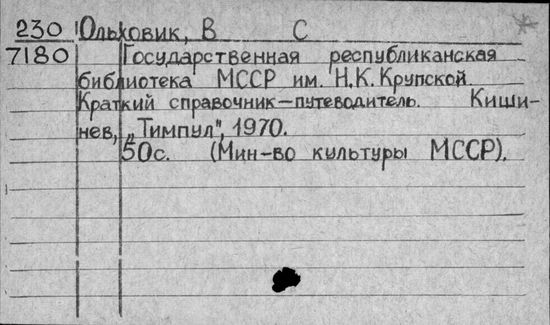 230 Ольховик, В С
7180 Государственная республиканская
библиотека МССР им. Н.К. Крупской
Краткий справочник-путеводитель. Киши-
нев, „Тимпул", 1970.
50с. (Мин-во культуры МССР).